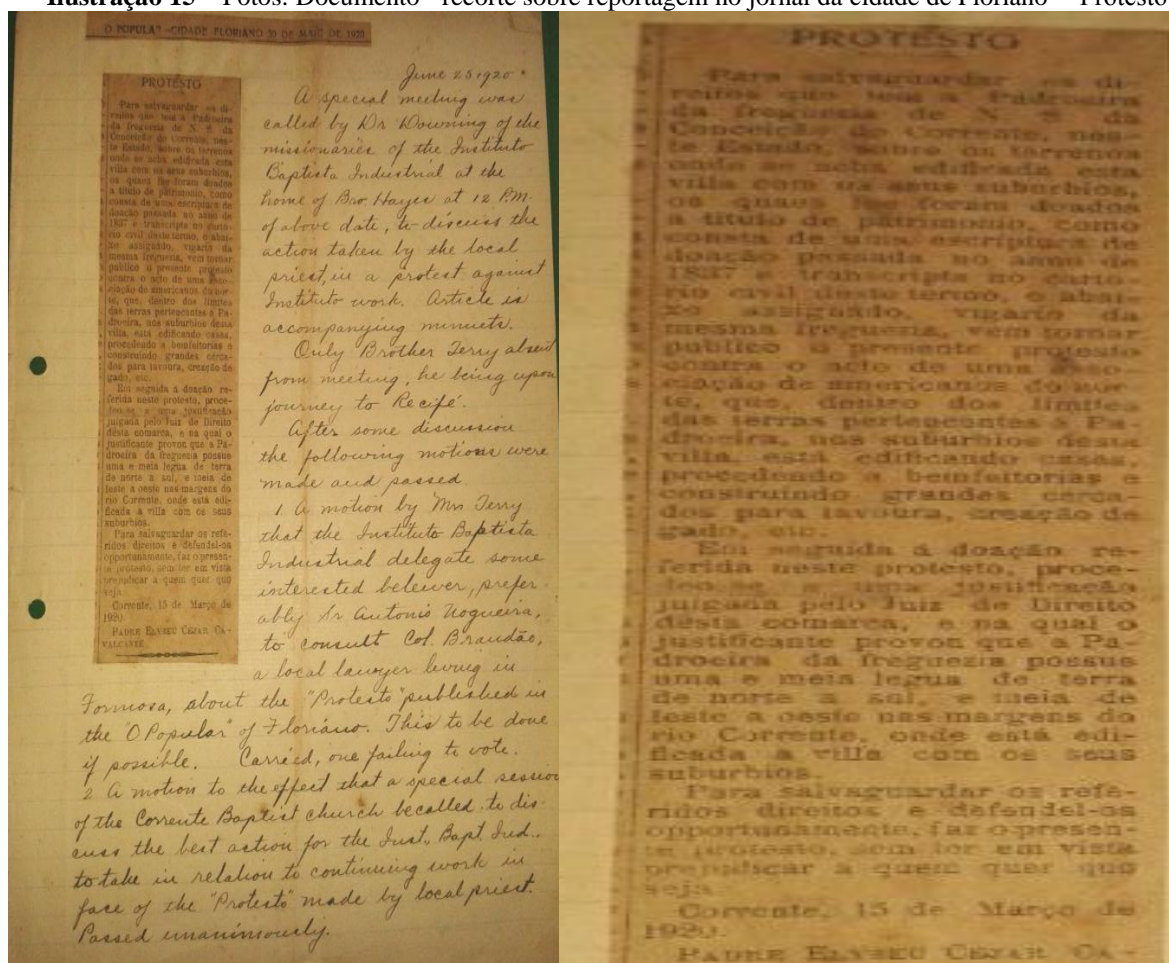 Ilustração 15 – Fotos: Documento - recorte sobre reportagem no jornal da cidade de Floriano – "Protesto
O POPULAR - CIDADE FLORIANO 20 DE MAIO DE 1920
PROTESTO
Para salvaguardar os di-
reitos que tem a Padroeira
da freguesia de N. S. da
Conceição de Corrente, nes-
te Estado, sobre os terrenos
onde se acha edificada esta
villa com os seus suburbios,
os quaes lhe foram doados
a titulo de patrimonio, como
consta de uma escriptura de
doação passada no anno de
1837 e transcripta no carto-
rio civil deste termo, o abai-
xo assignado, vigario da
mesma freguesia, vem tornar
publico o presente protesto
contra o acto de uma asso-
ciação de americanos do nor-
te, que, dentro dos limites
das terras pertencentes a Pa-
droeira, nos suburbios desta
villa, está edificando casas,
procedendo a bemfeitorias e
construindo grandes cerca-
dos para lavoura, creação de
gado, etc.
Em seguida á doação re-
ferida neste protesto, proce-
deu-se a uma justificação
julgada pelo Juiz de Direito
desta comarca, e na qual o
justificante provou que a Pa-
droeira da freguezia possue
uma e meia legua de terra
de norte a sul, e meia de
leste a oeste nas margens do
rio Corrente, onde está edi-
ficada a villa com os seus
suburbios.
Para salvaguardar os refe-
ridos direitos e defendel-os
opportunamente, faz o presen-
te protesto, sem ter em vista
prejudicar a quem quer que
seja.
Corrente, 15 de Março de
1920.
PADRE ELYSEU CEZAR CA-
VALCANTE.
June 25 1920
A special meeting was
called by Dr Downing of the
missionaries of the Instituto
Baptista Industrial at the
home of Bro Hayes at 12 P.M.
of above date, to discuss the
action taken by the local
priest, in a protest against
Instituto work. Article is
accompanying minuets.
Only Brother Terry absent
from meeting, he being upon
journey to Recife.
After some discussion
the following motions were
made and passed.
1. A motion by Mrs Terry
that the Instituto Baptista
Industrial delegate some
interested beleiver, prefer-
ably Sr Antonio Nogueira,
to consult Col. Brandão,
a local lawyer living in
Formosa, about the "Protesto" published in
the "O Popular" of Floriano. This to be done
if possible. Carried, one failing to vote.
2 A motion to the effect that a special session
of the Corrente Baptist church be called to dis-
cuss the best action for the Inst. Bapt. Ind..
to take in relation to continuing work in
face of the "Protesto" made by local priest.
Passed unanimously.
PROTESTO
Para salvaguardar os di-
reitos que tem a Padroeira
da freguesia de N. S. da
Conceição de Corrente, nes-
te Estado, sobre os terrenos
onde se acha edificada esta
villa com os seus suburbios,
os quaes lhe foram doados
a titulo de patrimonio, como
consta de uma escriptura de
doação passada no anno de
1837 e transcripta no carto-
rio civil deste termo, o abai-
xo assignado, vigario da
mesma freguesia, vem tornar
publico o presente protesto
contra o acto de uma asso-
ciação de americanos do nor-
te, que, dentro dos limites
das terras pertencentes a Pa-
droeira, nos suburbios desta
villa, está edificando casas,
procedendo a bemfeitorias e
construindo grandes cerca-
dos para lavoura, creação de
gado, etc.
Em seguida á doação re-
ferida neste protesto, proce-
deu-se a uma justificação
julgada pelo Juiz de Direito
desta comarca, e na qual o
justificante provou que a Pa-
droeira da freguezia possue
uma e meia legua de terra
de norte a sul, e meia de
leste a oeste nas margens do
rio Corrente, onde está edi-
ficada a villa com os seus
suburbios.
Para salvaguardar os refe-
ridos direitos e defendel-os
opportunamente, faz o presen-
te protesto, sem ter em vista
prejudicar a quem quer que
seja.
Corrente, 15 de Março de
1920.
PADRE ELYSEU CEZAR CA-